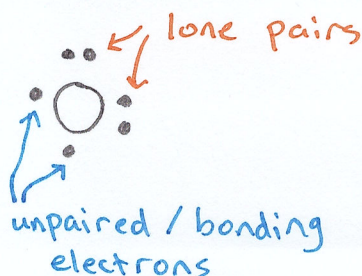 lone pairs
unpaired / bonding
electrons